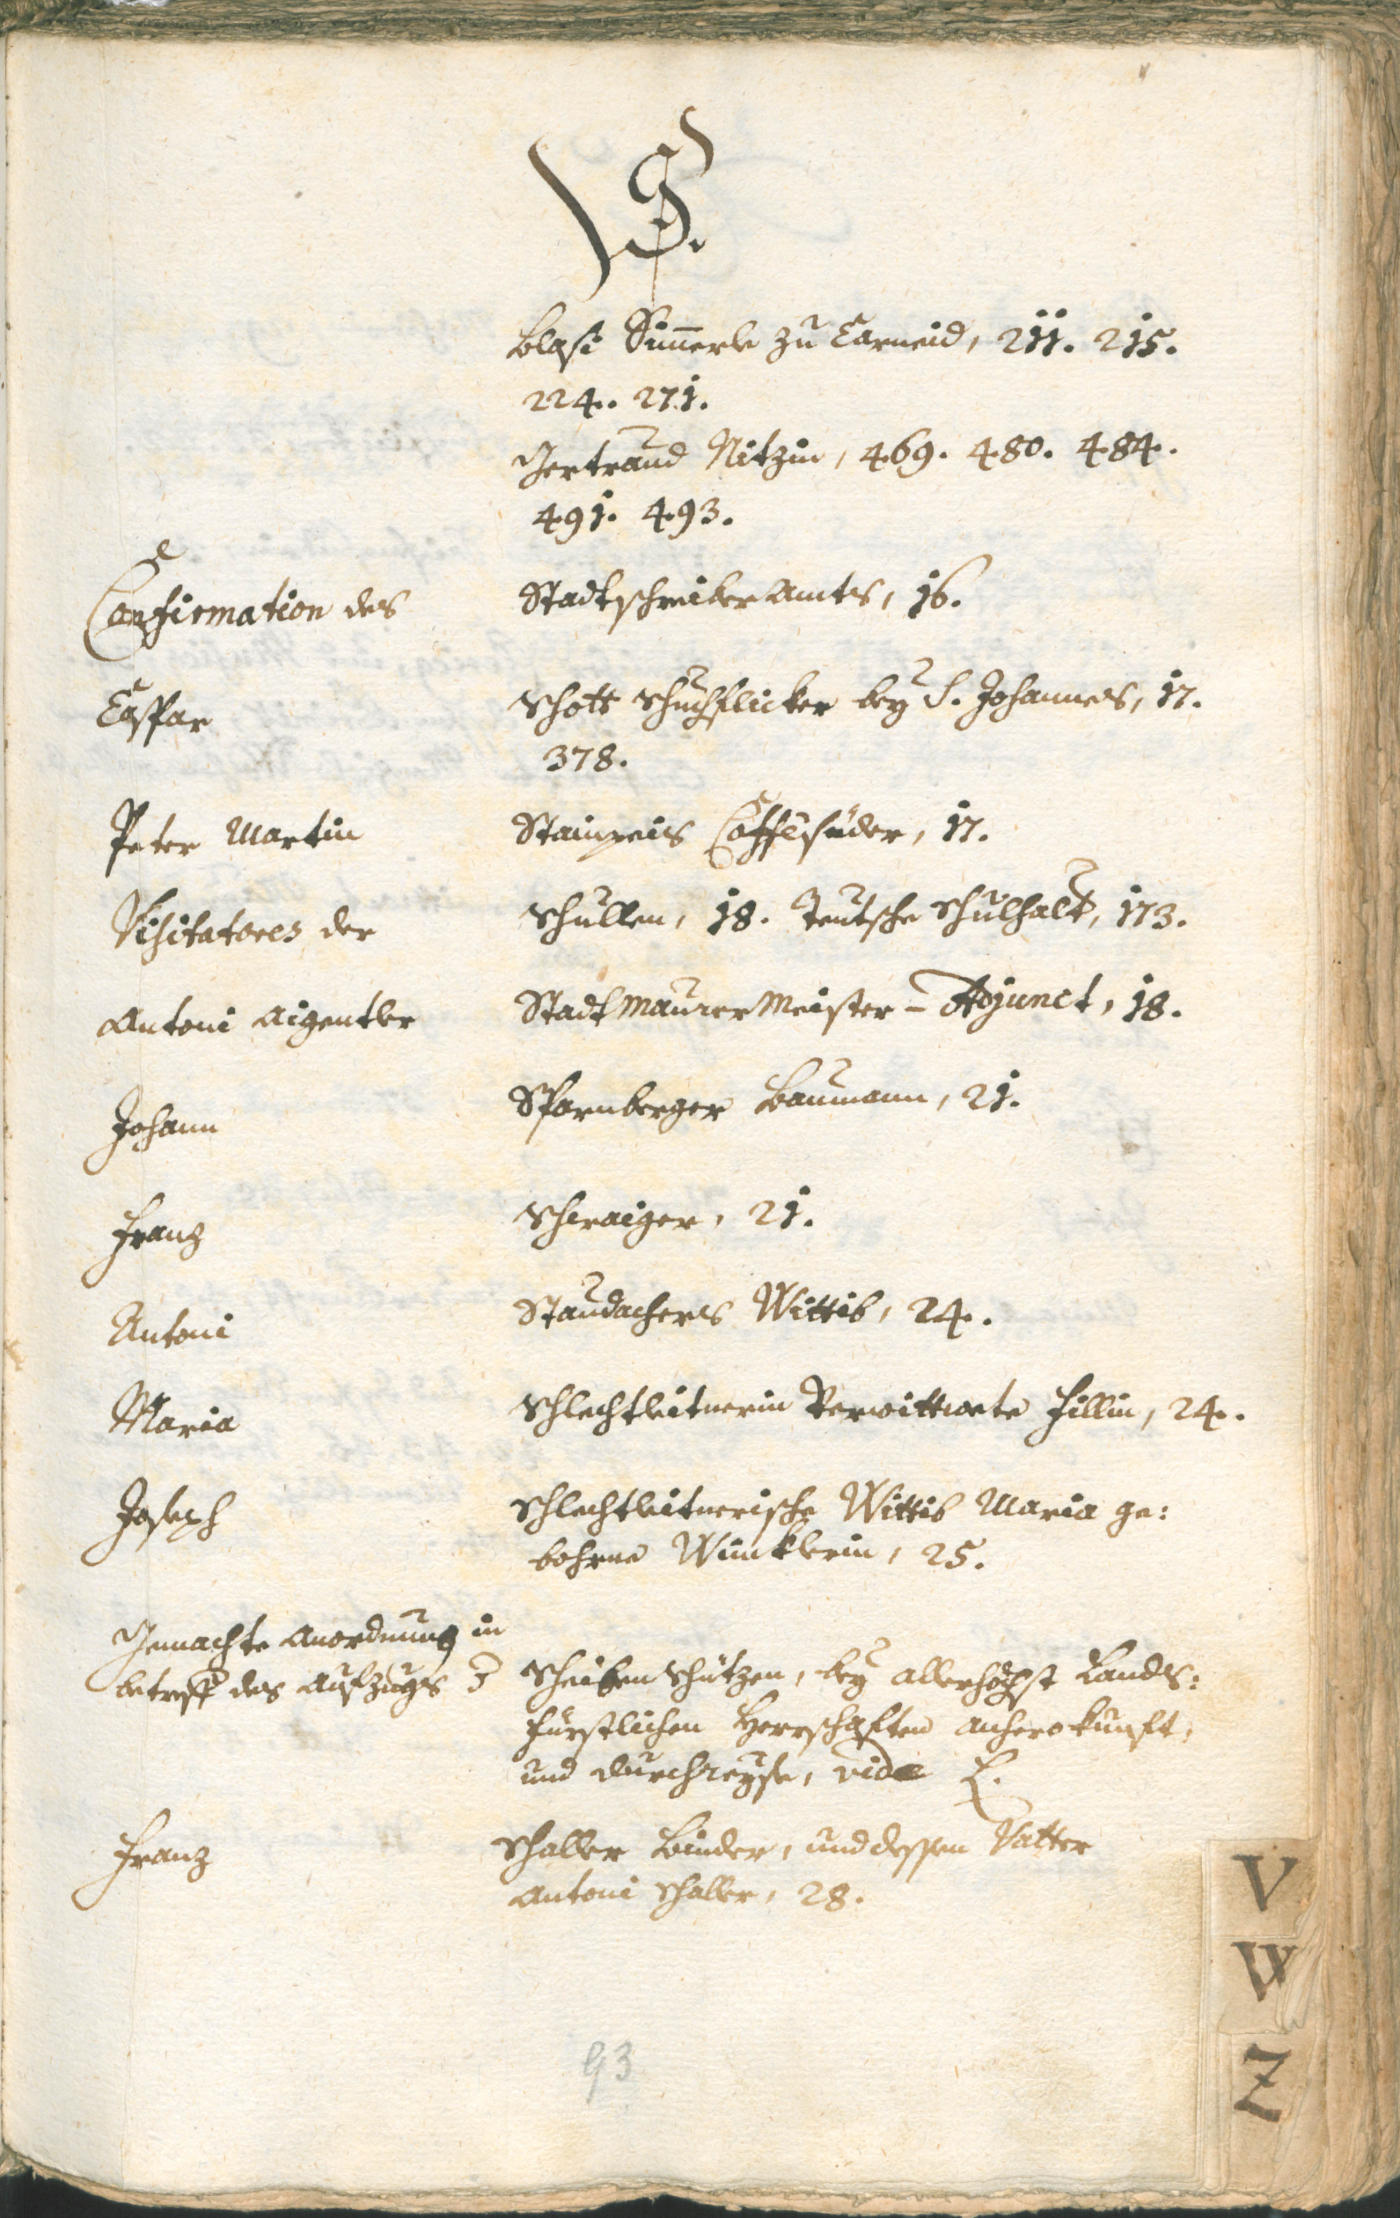 S.
Blasi Simerle zu Carneid, 211. 215.
224. 271.
Gertraud Nitzin, 469. 480. 484.
491. 493.
Confirmation des Stadtschreiber Amts, 16.
Caspar Schott Schuchflicker bey S. Johannes, 17.
378.
Peter Martin Stainpeis Coffésieder, 17.
Visitatores der Schullen, 18. Teutsche Schulhalt, 173.
Antoni Aigentler Stadt Maurer Meister - Adjunct, 18.
Johann Sparnberger Baumann, 21.
Franz Schraiger, 21.
Antoni Staudachers Wittib, 24.
Maria Schlechtleitnerin Verwittwete Hillin, 24.
Joseph Schlechtleitnerische Wittib Maria ge:
bohrne Winklerin, 25.
Gemachte Anordnung in
betreff des Aufzugs d Scheiben Schützen, bey allerhöchst Lands:
fürstlichen Herrschaften anherokunft,
und durchreyse, vide E.
Franz Schaller Binder, und dessen Vatter
Antoni Schaller, 28.
V
W
Z
93